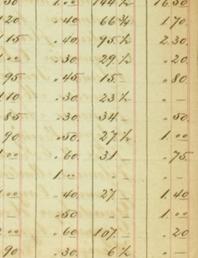 50 1.00 144½ 16.50
120 .40 66¾ 170
115 .40 95½ 2.30
.30 29½ .20
95 .45 15. .80
110 .30 23½ . –
85 .30 34. .50
90 .50. 27½ 1.00
.60. 31 – .75
1.00 – . –
.40. 27 1.40
– .50 – 1.00
.60 107. – .20
90 .30. 6½ . –